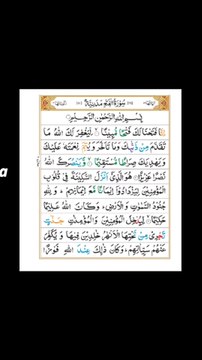 سُوْرَةُ الْفَتْحِ مَدَنِيَّةٌ
بِسْمِ اللهِ الرَّحْمٰنِ الرَّحِيْمِ
اِنَّا فَتَحْنَا لَكَ فَتْحًا مُّبِيْنًا لِّيَغْفِرَ لَكَ اللهُ مَا
تَقَدَّمَ مِنْ ذَنْۢبِكَ وَمَا تَاَخَّرَ وَيُتِمَّ نِعْمَتَهٗ عَلَيْكَ
وَيَهْدِيَكَ صِرَاطًا مُّسْتَقِيْمًا وَّيَنْصُرَكَ اللهُ
نَصْرًا عَزِيْزًا هُوَ الَّذِيْٓ اَنْزَلَ السَّكِيْنَةَ فِيْ قُلُوْبِ
الْمُؤْمِنِيْنَ لِيَزْدَادُوْٓا اِيْمَانًا مَّعَ اِيْمَانِهِمْ وَلِلّٰهِ
جُنُوْدُ السَّمٰوٰتِ وَالْاَرْضِ وَكَانَ اللهُ عَلِيْمًا
حَكِيْمًا لِّيُدْخِلَ الْمُؤْمِنِيْنَ وَالْمُؤْمِنٰتِ جَنّٰتٍ
تَجْرِيْ مِنْ تَحْتِهَا الْاَنْهٰرُ خٰلِدِيْنَ فِيْهَا وَيُكَفِّرَ
عَنْهُمْ سَيِّاٰتِهِمْ وَكَانَ ذٰلِكَ عِنْدَ اللهِ فَوْزًا
a